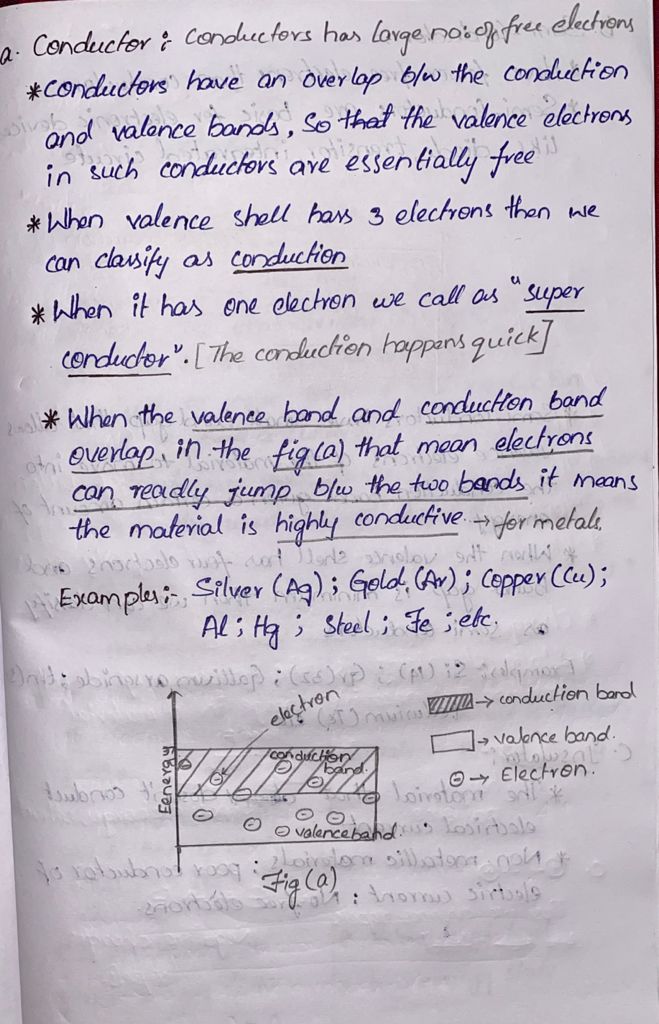 a. Conductor : Conductors has large no: of free electrons
* Conductors have an overlap b/w the conduction
and valence bands, so that the valence electrons
in such conductors are essentially free
* When valence shell has 3 electrons then we
can classify as conduction
* When it has one electron we call as "super
conductor". [The conduction happens quick]
* When the valence band and conduction band
overlap, in the fig(a) that mean electrons
can readly jump b/w the two bands it means
the material is highly conductive. → for metals.
Examples :- Silver (Ag) ; Gold. (Ar) ; Copper (Cu) ;
Al ; Hg ; Steel ; Fe ; etc.
electron
conduction band
valence band.
Electron.
Eenergy
conduction
band.
valence band.
Fig(a)